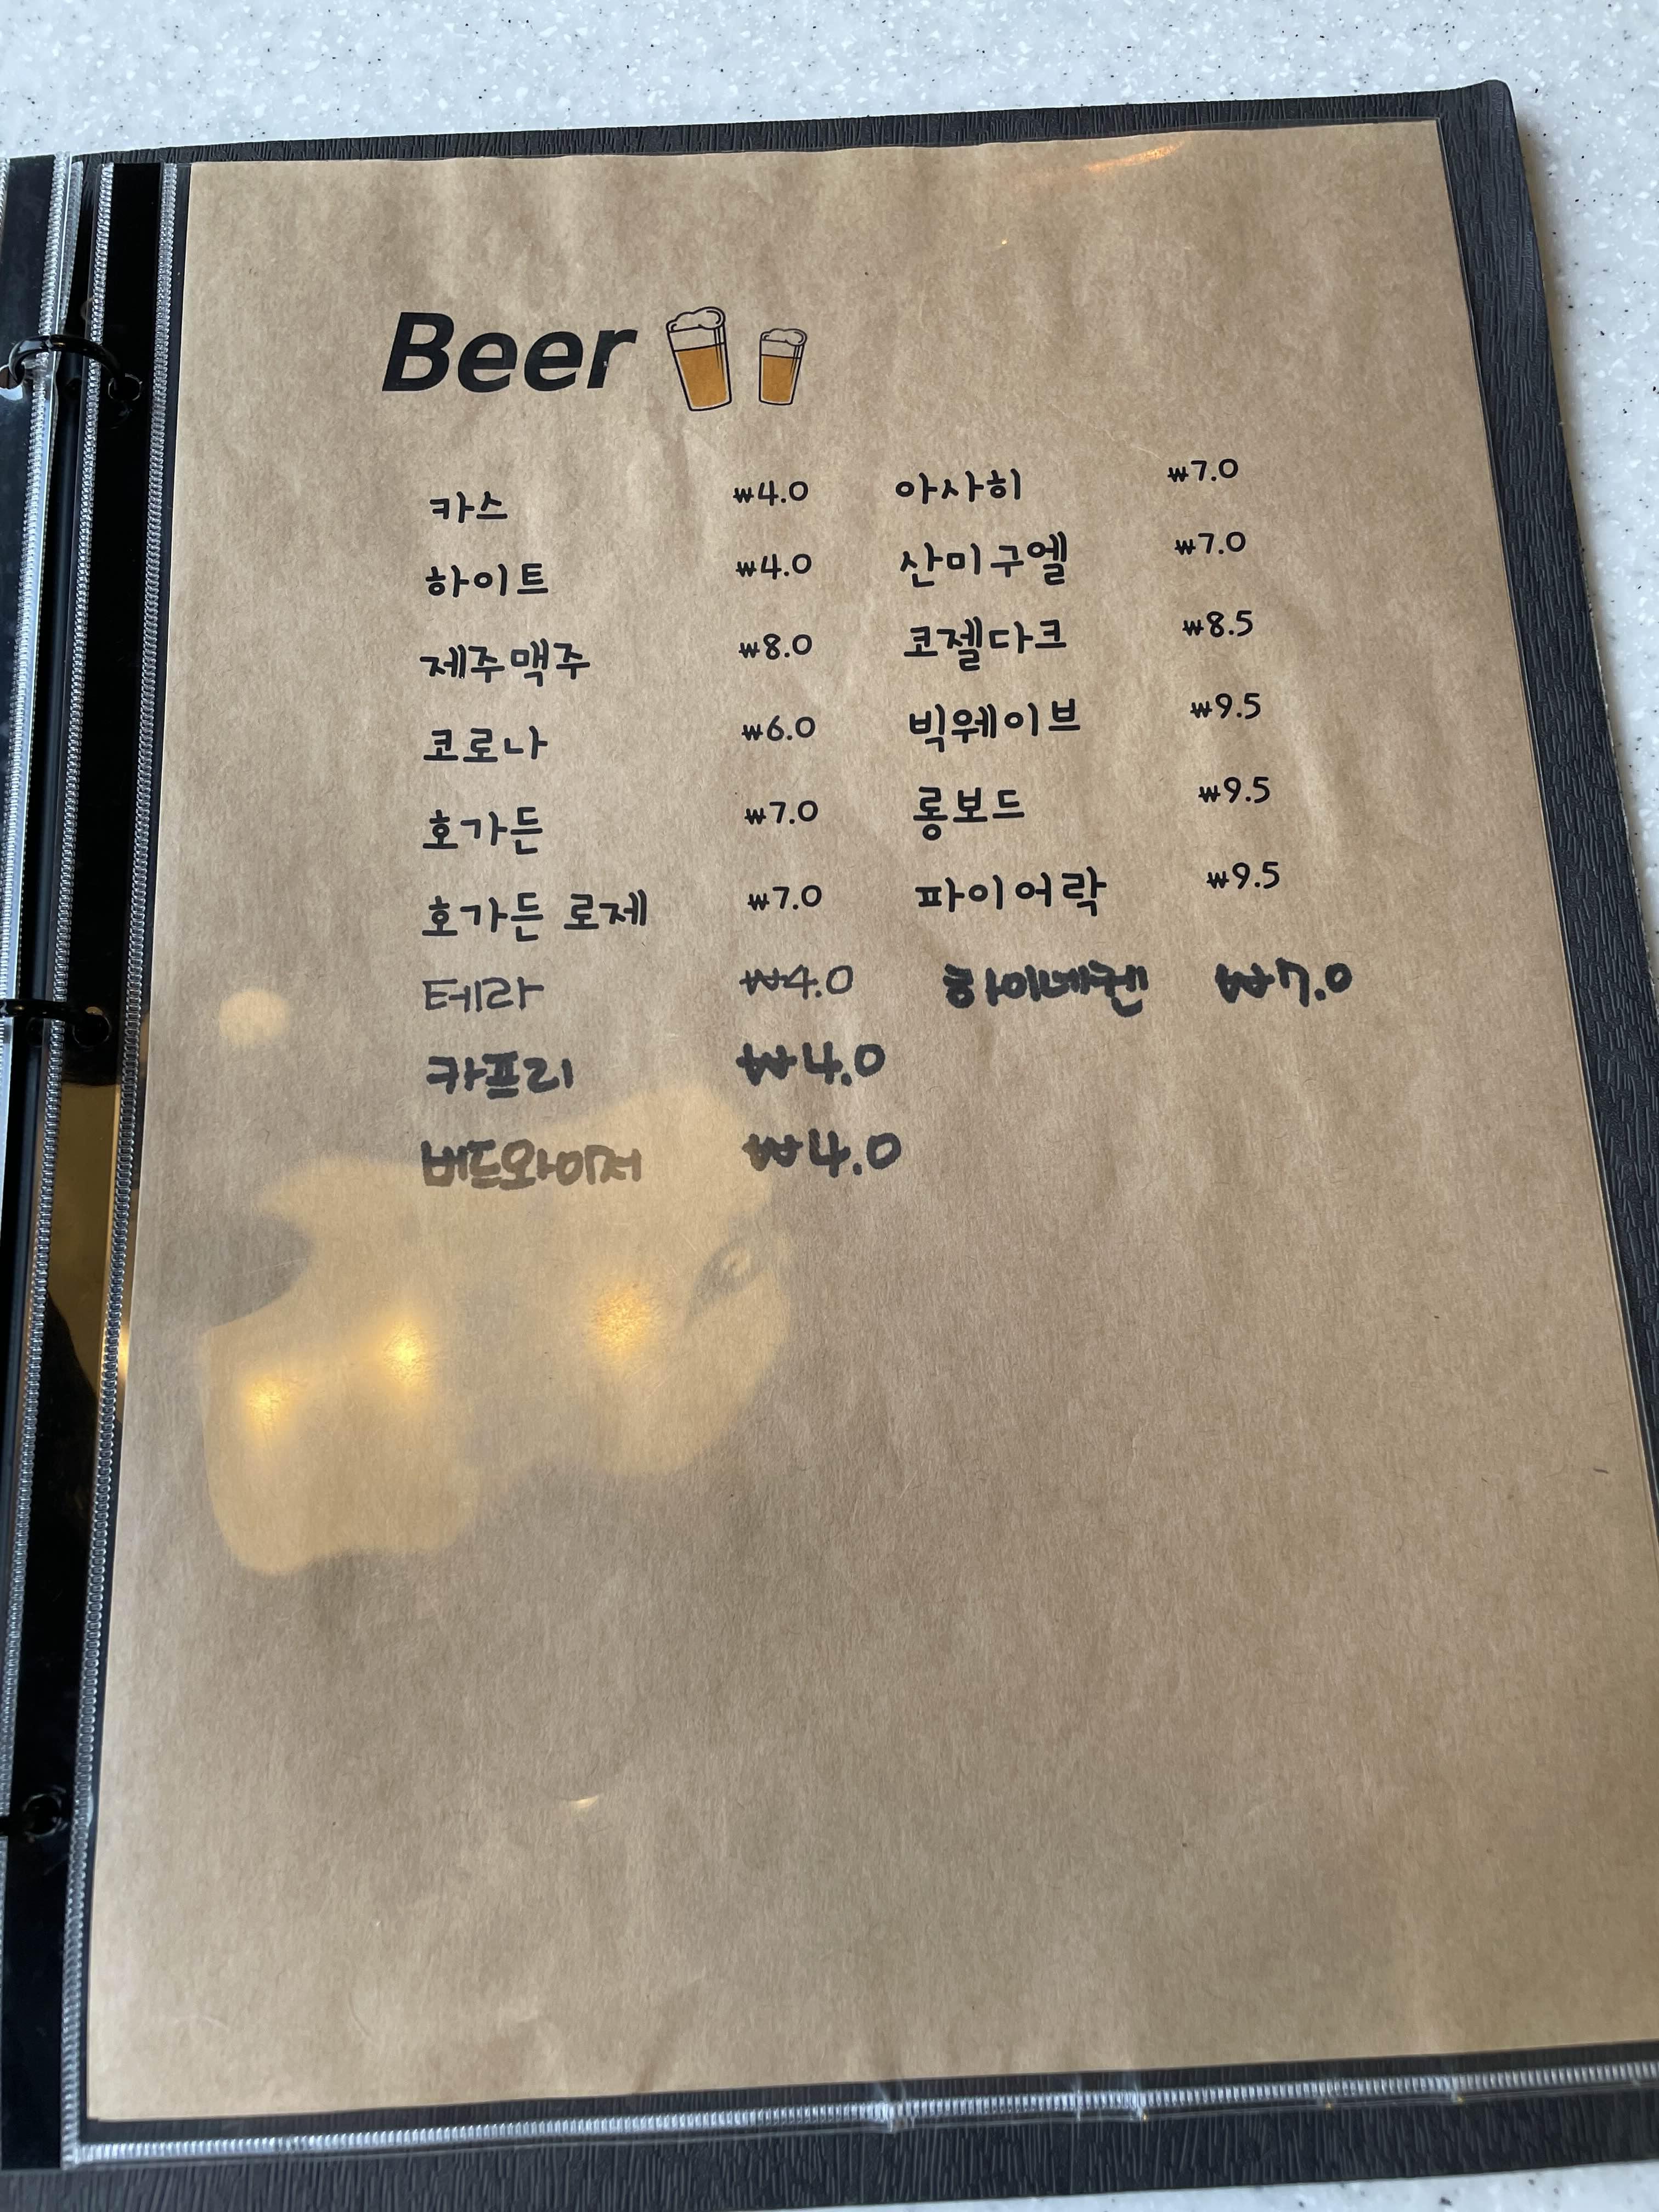 Beer
카스 ₩4.0
하이트 ₩4.0
제주맥주 ₩8.0
코로나 ₩6.0
호가든 ₩7.0
호가든 로제 ₩7.0
테라 ₩4.0
카프리 ₩4.0
버드와이저 ₩4.0
아사히 ₩7.0
산미구엘 ₩7.0
코젤다크 ₩8.5
빅웨이브 ₩9.5
롱보드 ₩9.5
파이어락 ₩9.5
하이네켄 ₩7.0